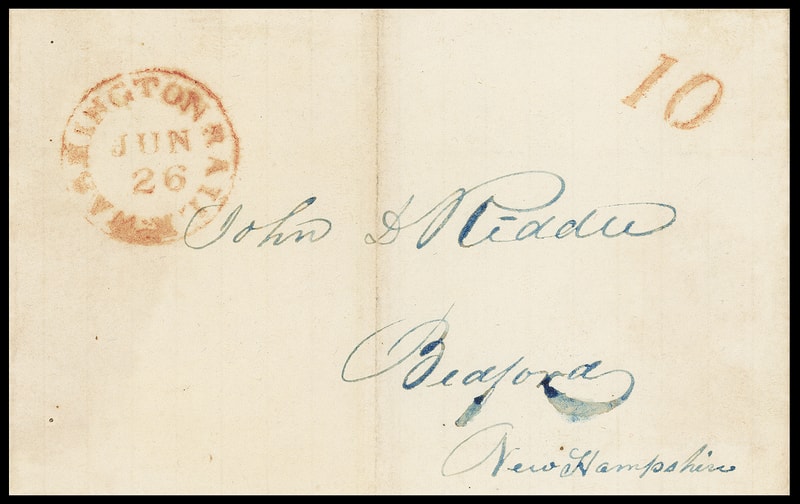 WASHINGTON RAILR
JUN
26
10
John D Riddle
Bedford
New Hampshire